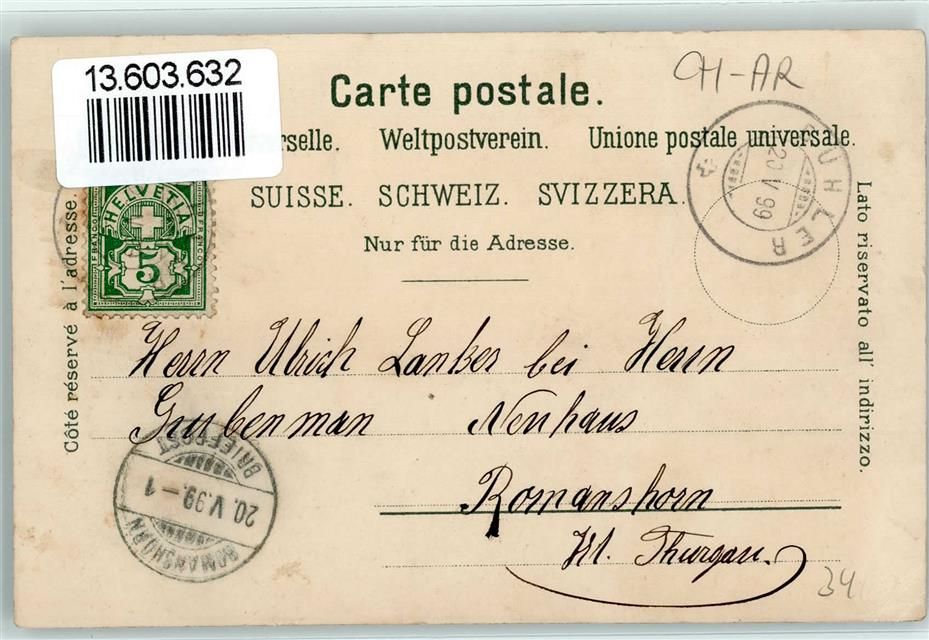 13.603.632
CH-AR
Carte postale.
rselle. Weltpostverein. Unione postale universale.
SUISSE. SCHWEIZ. SVIZZERA.
Nur für die Adresse.
Côté réservé à l'adresse.
Lato riservato all' indirizzo.
HELVETIA
FRANCO
FRANCO
5
BÜHLER
20 V 99
Herrn Ulrich Lanker bei Herrn
Grubenman Neuhaus
Romanshorn
Kt. Thurgau.
BRIEFPOST
20. V. 99.-1
ROMANSHORN
34